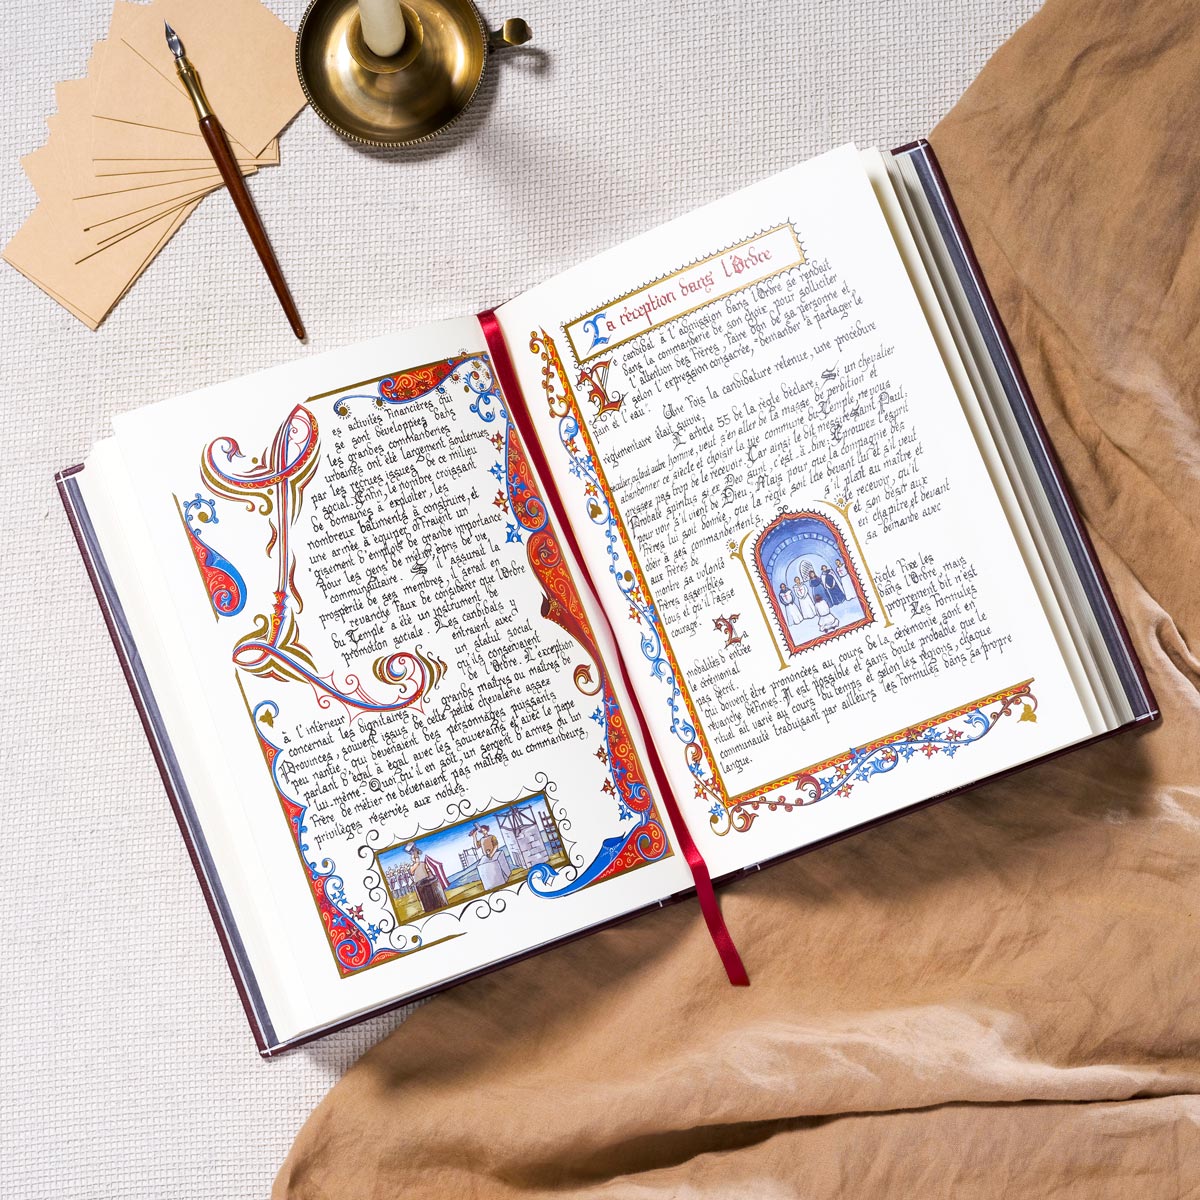 Les activités financières qui
se sont développées dans
les grandes commanderies
urbaines ont été largement soutenues
par les recrues issues de ce milieu
social. Enfin, le nombre croissant
de domaines à exploiter, les
nombreux bâtiments à construire, et
une armée à équiper offraient un
gisement d'emplois de grande importance
pour les gens de métier, épris de vie
communautaire. S'il assurait la
prospérité de ses membres, il serait en
revanche faux de considérer que l'Ordre
du Temple a été un instrument de
promotion sociale. Les candidats y
entraient avec
un statut social
qu'ils conservaient
à l'intérieur de l'Ordre. L'exception
concernait les dignitaires, grands maîtres ou maîtres de
Provinces, souvent issus de cette petite chevalerie assez
peu nantie, qui devenaient des personnages puissants
parlant d'égal à égal avec les souverains et avec le pape
lui-même. Quoi qu'il en soit, un sergent d'armes ou un
frère de métier ne devenaient pas maîtres ou commandeurs,
privilèges réservés aux nobles.
La réception dans l'Ordre
Le candidat à l'admission dans l'Ordre se rendait
dans la commanderie de son choix pour solliciter
l'attention des Frères, faire don de sa personne et
selon l'expression consacrée, "demander à partager le
pain et l'eau".
Une fois la candidature retenue, une procédure
réglementaire était suivie.
L'article 55 de la règle déclare, "Si un chevalier
séculier ou tout autre homme, veut s'en aller de la masse de perdition et
abandonner ce siècle et choisir la vie commune du Temple, ne vous
pressez pas trop de le recevoir. Car ainsi le dit messire saint Paul,
Probate spiritus si ex Deo sunt, c'est-à-dire, Éprouvez l'esprit
pour voir s'il vient de Dieu. Mais pour que la compagnie des
Frères lui soit donnée, que la règle soit lue devant lui et s'il veut
obéir à ses commandements, s'il plaît au maître et
aux Frères de le recevoir, qu'il
montre sa volonté et son désir aux
Frères assemblés en chapitre et devant
et qu'il fasse sa demande avec
courage."
La règle fixe les
modalités d'entrée dans l'Ordre, mais
le cérémonial proprement dit n'est
pas décrit. Les formules
qui doivent être prononcées au cours de la cérémonie, sont en
revanche définies. Il est possible et sans doute probable que le
rituel ait varié au cours du temps et selon les régions, chaque
communauté traduisant par ailleurs les formules dans sa propre
langue.